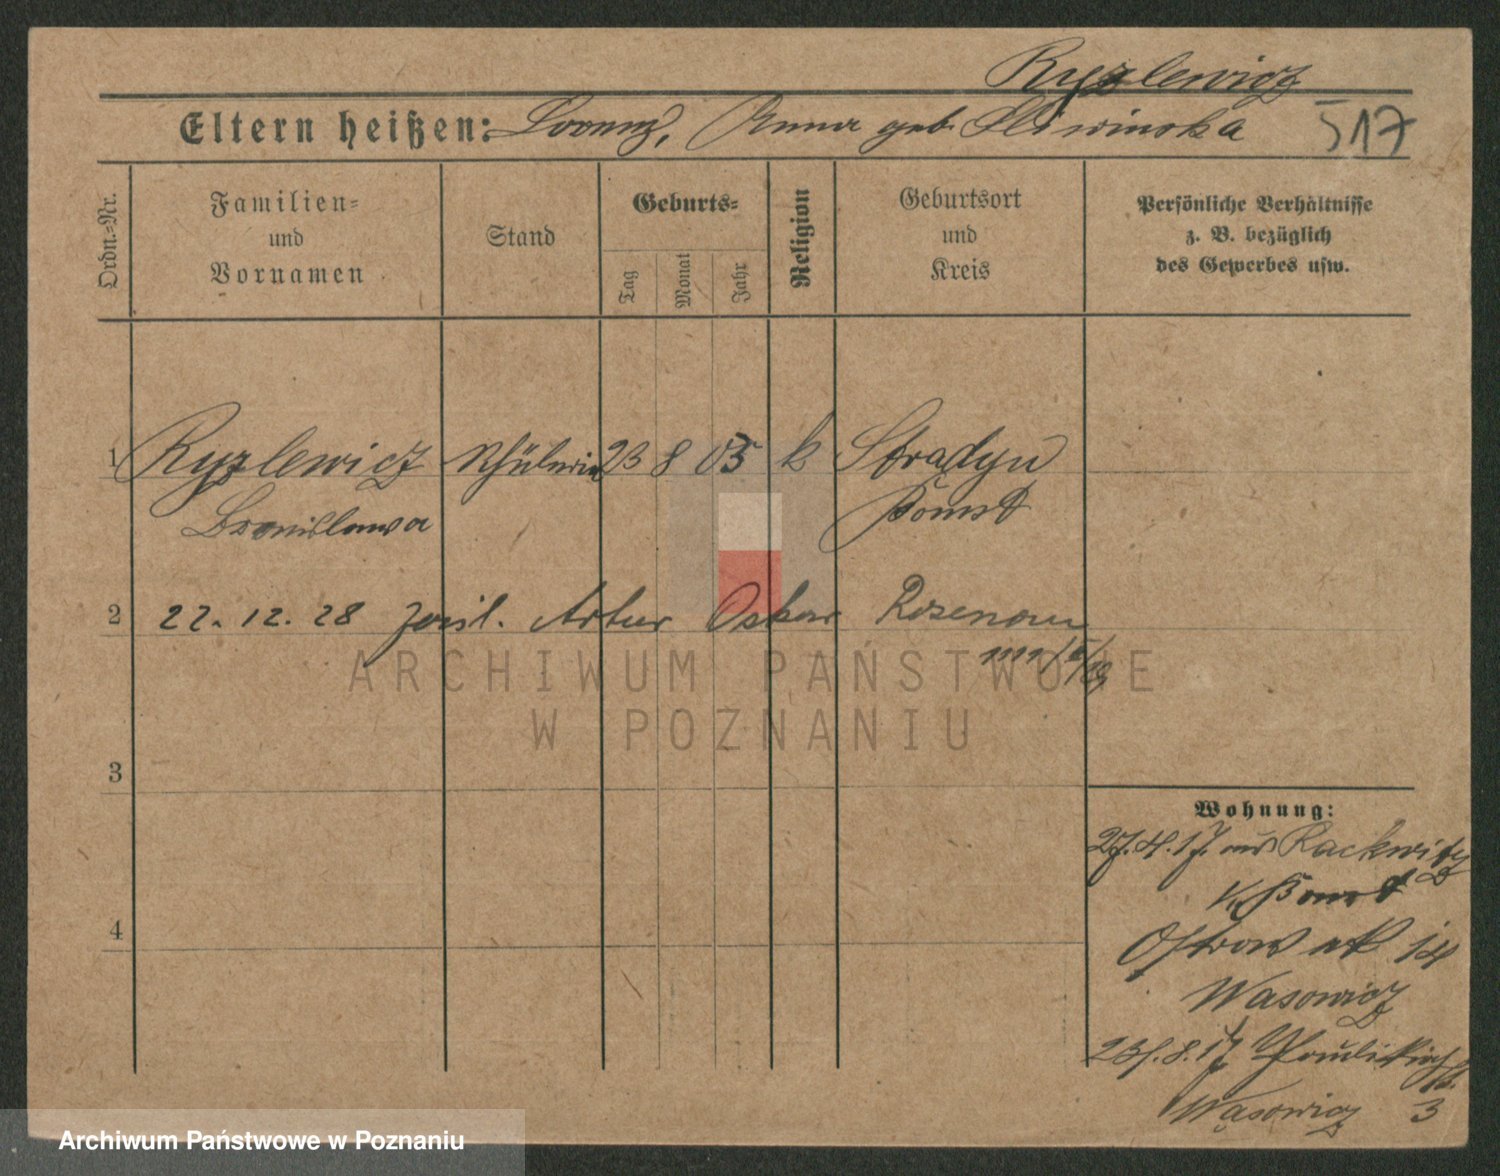 Ryzlewicz
Eltern heißen: Lorenz, Anna geb. Sliwinska 517
Ordn.-Nr.
Familien-
und
Vornamen
Stand
Geburts-
Tag
Monat
Jahr
Religion
Geburtsort
und
Kreis
Persönliche Verhältnisse
z. B. bezüglich
des Gewerbes usw.
1 Ryzlewicz Schülerin 23 8 05 k Strądyń
Bronisława Bomst
2 22.12.28 Artur Oskar Rosenau
ARCHIWUM PAŃSTWOWE
W POZNANIU
3
Wohnung:
27.4.17. aus Rackwitz
K. Bomst
4
Ostrow 14
Wasowicz
23.8.17 Paulikirchstr.
Wąsowicz 3
Archiwum Państwowe w Poznaniu